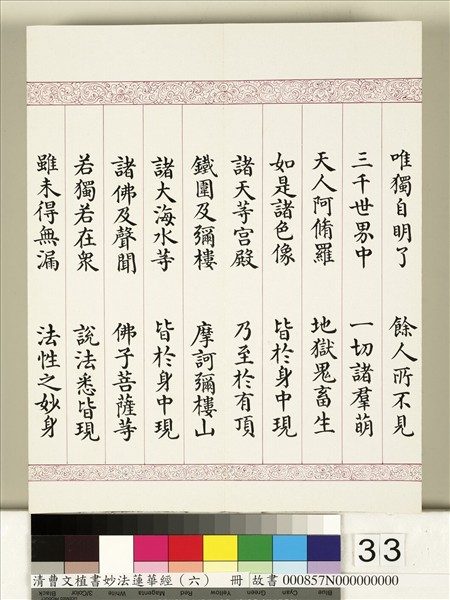 唯獨自明了　餘人所不見
三千世界中　一切諸羣萌
天人阿脩羅　地獄鬼畜生
如是諸色像　皆於身中現
諸天等宮殿　乃至於有頂
鐵圍及彌樓　摩訶彌樓山
諸大海水等　皆於身中現
諸佛及聲聞　佛子菩薩等
若獨若在衆　說法悉皆現
雖未得無漏　法性之妙身
33
清曹文植書妙法蓮華經（六）　冊　故書 000857N000000000
Black 3/Color White Magenta Red Yellow Green Cyan Blue